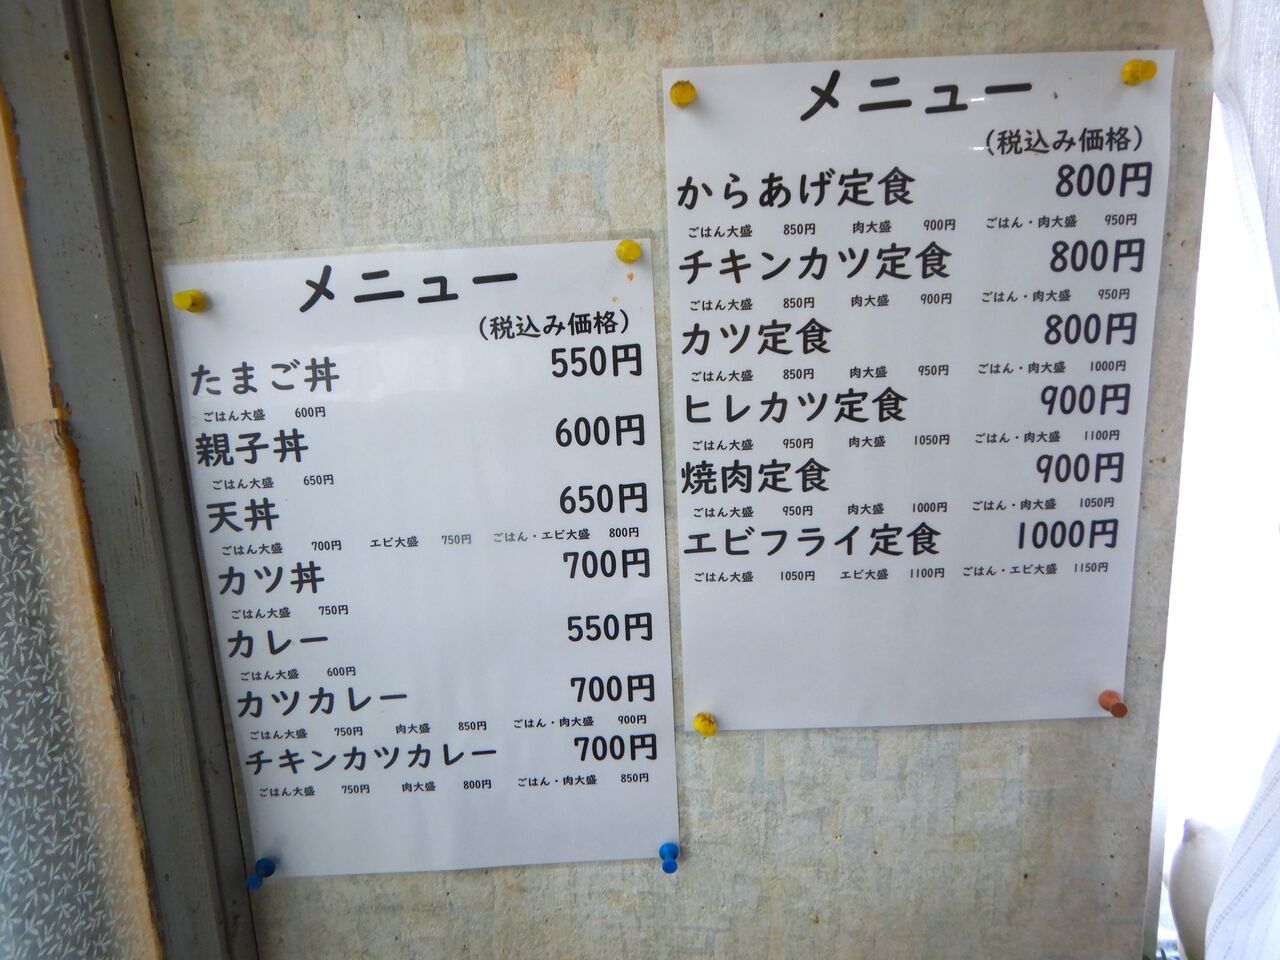 メニュー
(税込み価格)
たまご丼 550円
ごはん大盛 600円
親子丼 600円
ごはん大盛 650円
天丼 650円
ごはん大盛 700円 エビ大盛 750円 ごはん・エビ大盛 800円
カツ丼 700円
ごはん大盛 750円
カレー 550円
ごはん大盛 600円
カツカレー 700円
ごはん大盛 750円 肉大盛 850円 ごはん・肉大盛 900円
チキンカツカレー 700円
ごはん大盛 750円 肉大盛 800円 ごはん・肉大盛 850円
メニュー
(税込み価格)
からあげ定食 800円
ごはん大盛 850円 肉大盛 900円 ごはん・肉大盛 950円
チキンカツ定食 800円
ごはん大盛 850円 肉大盛 900円 ごはん・肉大盛 950円
カツ定食 800円
ごはん大盛 850円 肉大盛 950円 ごはん・肉大盛 1000円
ヒレカツ定食 900円
ごはん大盛 950円 肉大盛 1050円 ごはん・肉大盛 1100円
焼肉定食 900円
ごはん大盛 950円 肉大盛 1000円 ごはん・肉大盛 1050円
エビフライ定食 1000円
ごはん大盛 1050円 エビ大盛 1100円 ごはん・エビ大盛 1150円